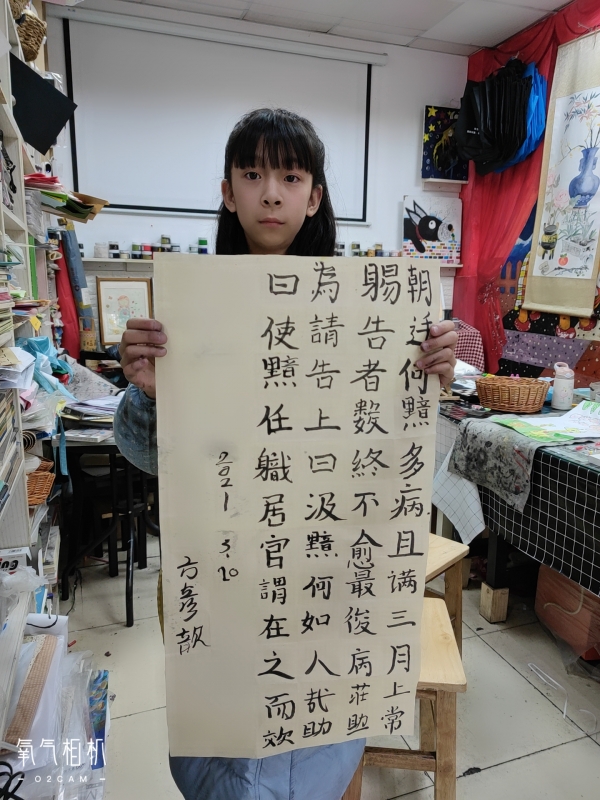 朝廷何黯多病且满三月上常
賜告者數終不愈最後病莊助
為請告上曰汲黯何如人哉助
曰使黯任職居官謂在之而效
2021 3.20
方彦歆
氧气相机
O2CAM